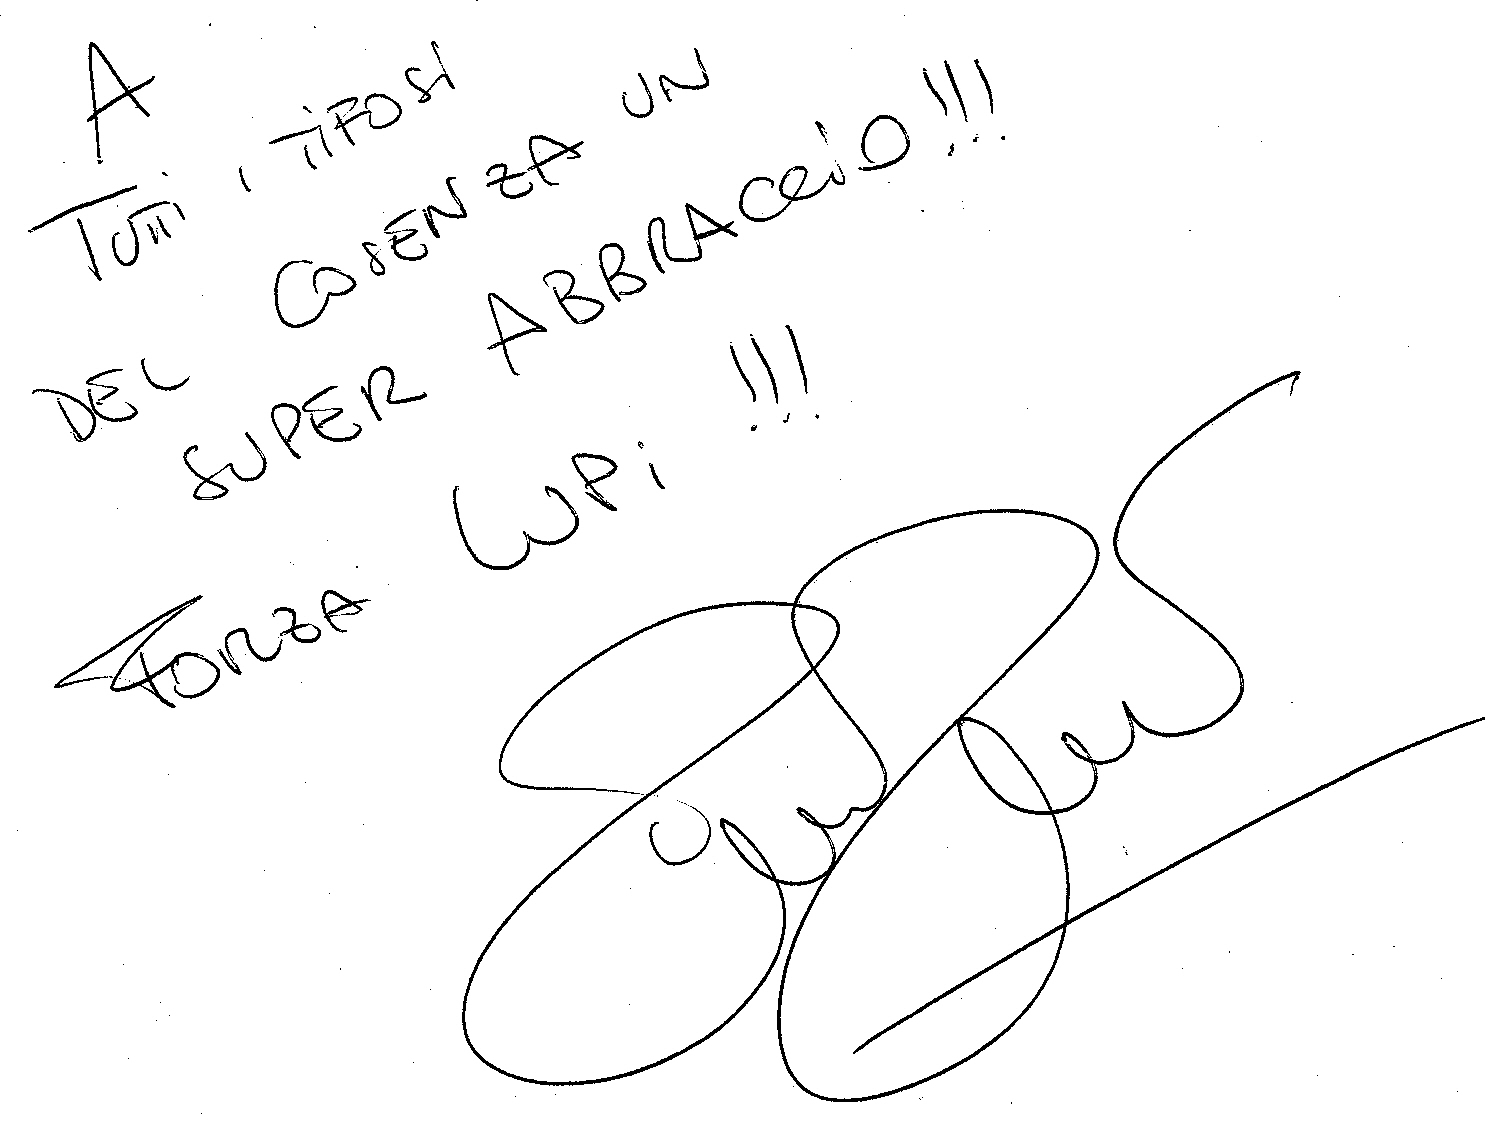 A
TUTTI I TIFOSI
DEL COSENZA UN
SUPER ABBRACCIO!!!
FORZA LUPI!!!